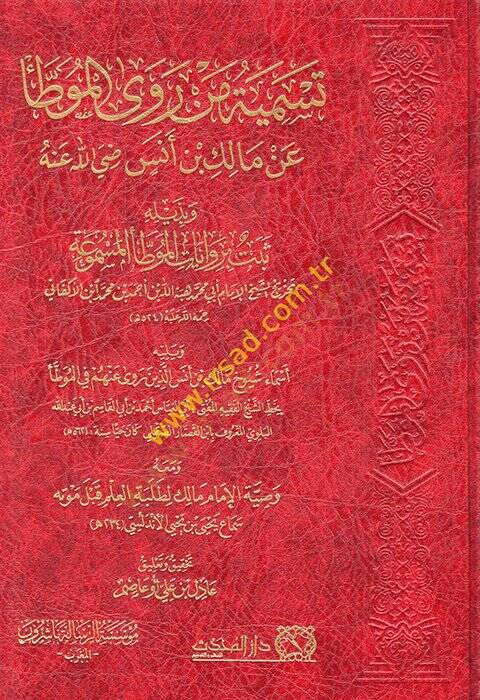 تسمية من روى الموطأ
عن مالك بن أنس رضي الله عنه
وبذيله
ثبت بروايات الموطأ المسموعة
تخريج الشيخ الإمام أبي محمد هبة الله بن أحمد بن محمد ابن الأكفاني
رحمة الله عليه (٥٢٤هـ)
ويليه
أسماء شيوخ مالك بن أنس الذين روى عنهم في الموطأ
بخط الشيخ الفقيه المفتي أبي العباس أحمد بن أبي القاسم بن أبي عبد الله
البلوي المعروف بابن القصار كان حيا سنة
ومعه
وصية الإمام مالك لطلبة العلم قبل موته
سماع يحيى بن يحيى الأندلسي (٢٣٤هـ)
تحقيق وتعليق
عادل بن علي أوعاصم
دار المحدث
مؤسسة الرسالة ناشرون
- المغرب -
www.irsad.com.tr